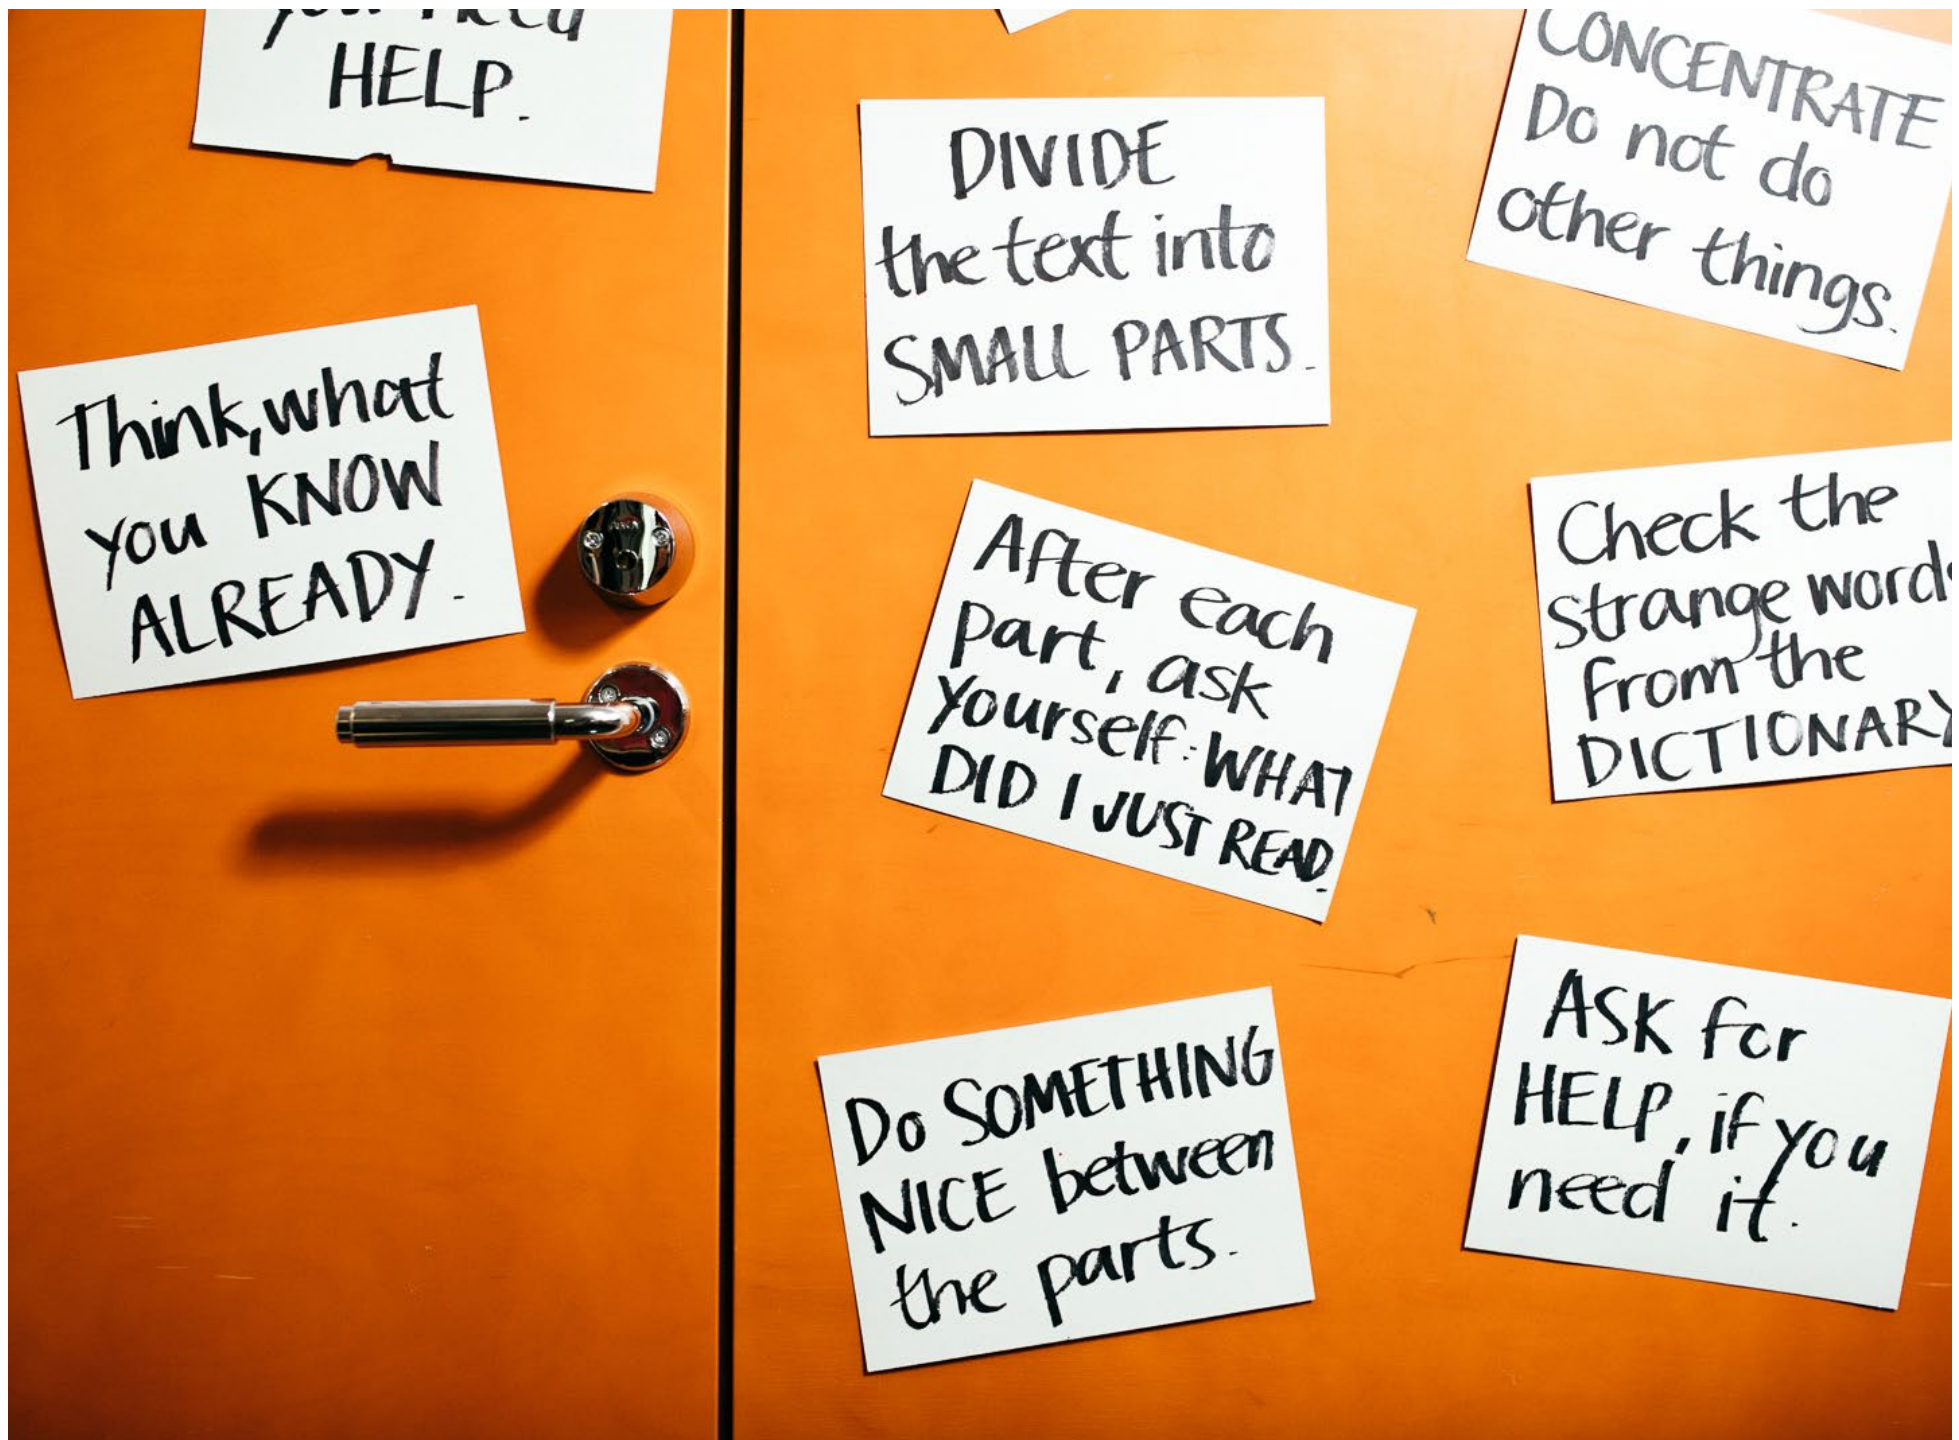 you need
HELP.
Think, what
you KNOW
ALREADY.
DIVIDE
the text into
SMALL PARTS.
After each
part, ask
yourself: WHAT
DID I JUST READ.
Do SOMETHING
NICE between
the parts.
CONCENTRATE
Do not do
other things.
Check the
strange words
from the
DICTIONARY
ASK for
HELP, if you
need it.